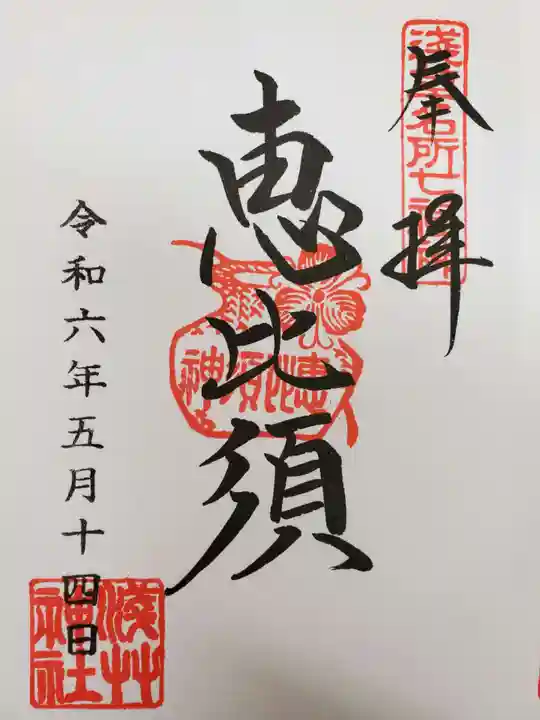 奉拝
淺草名所七福神
恵比須
恵比須神
令和六年五月十四日
淺草神社